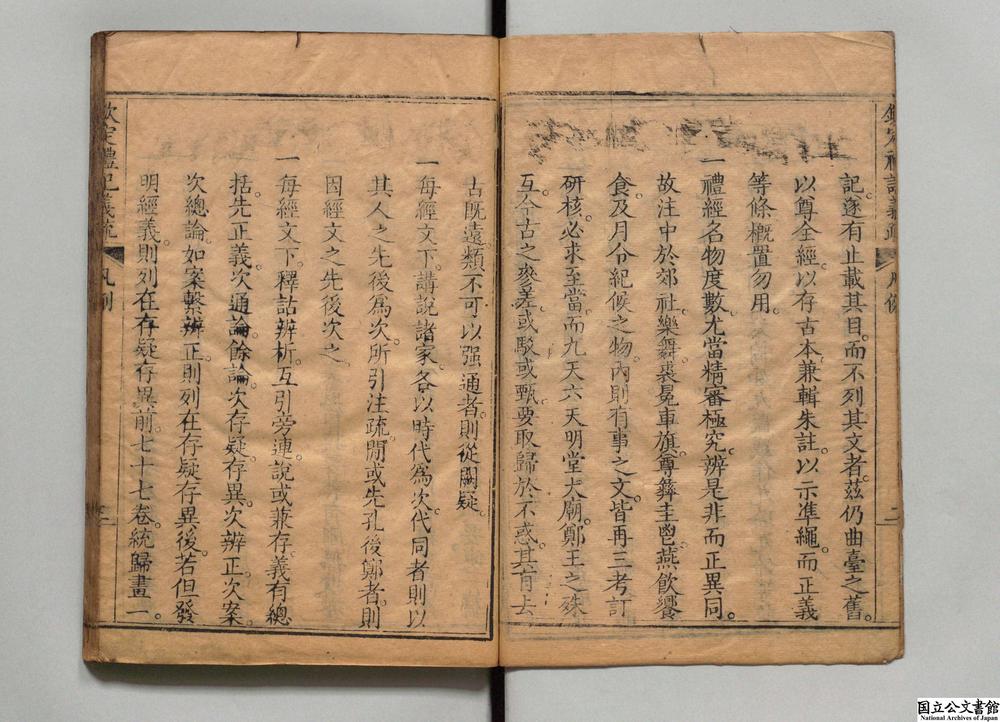 欽定禮記義疏 凡例 二
記。逐有止載其目。而不列其文者。茲仍曲臺之舊。
以尊全經。以存古本。兼輯朱註。以示準繩。而正義
等條概置勿用。
一禮經名物度數。尤當精審極究。辨是非而正異同。
故注中於郊社。樂舞。裘冕。車旗。尊彝。圭鬯。燕飲。饗
食。及月令紀候之物。內則有事之文。皆再三考訂
研核。必求至當。而九天六天。明堂大廟。鄭王之殊
互。今古之參差。或駁或甄。要取歸於不惑。其有去
古既遠。類不可以强通者。則從闕疑。
一每經文下。講說諸家。各以時代為次。代同者則以
其人之先後為次。所引注疏。間或先孔後鄭者。則
因經文之先後次之。
一每經文下。釋詁辨析。互引旁連。說或兼存。義有總
括。先正義。次通論。餘論。次存疑。存異。次辨正。次案。
次總論。如案繫辨正。則列在存疑存異後。若但發
明經義。則列在存疑存異前。七十七卷。統歸畫一。
欽定禮記義疏 凡例